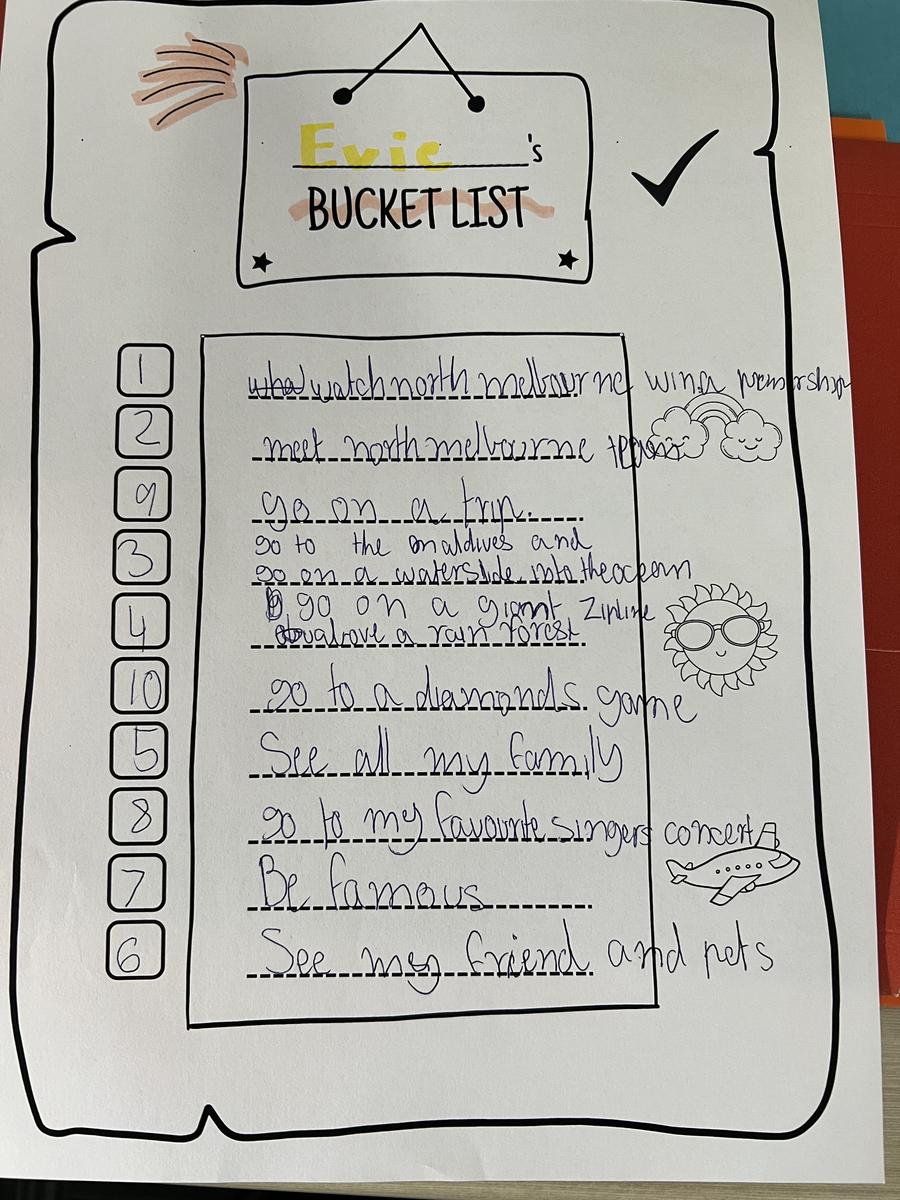 Evie's
BUCKET LIST
1 wha watch north melbourne win a premership
2 meet north melbourne team
9 go on a trip.
3 go to the maldives and
go on a waterslide into the ocean
4 go on a giant Zipline
above a rain forest
10 go to a diamonds game
5 See all my family
8 go to my favourite singers concert
7 Be famous
6 See my friend and pets